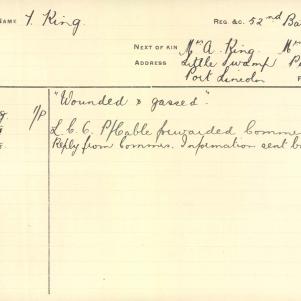 NAME F. King. REG &C. 52nd Ba
NEXT OF KIN Mrs A. King. Mr
ADDRESS Little Swamp P
Port Lincoln
"Wounded & gassed".
1/P L.C.C. P/Cable forwarded Comme
Reply from Commrs. Information sent b